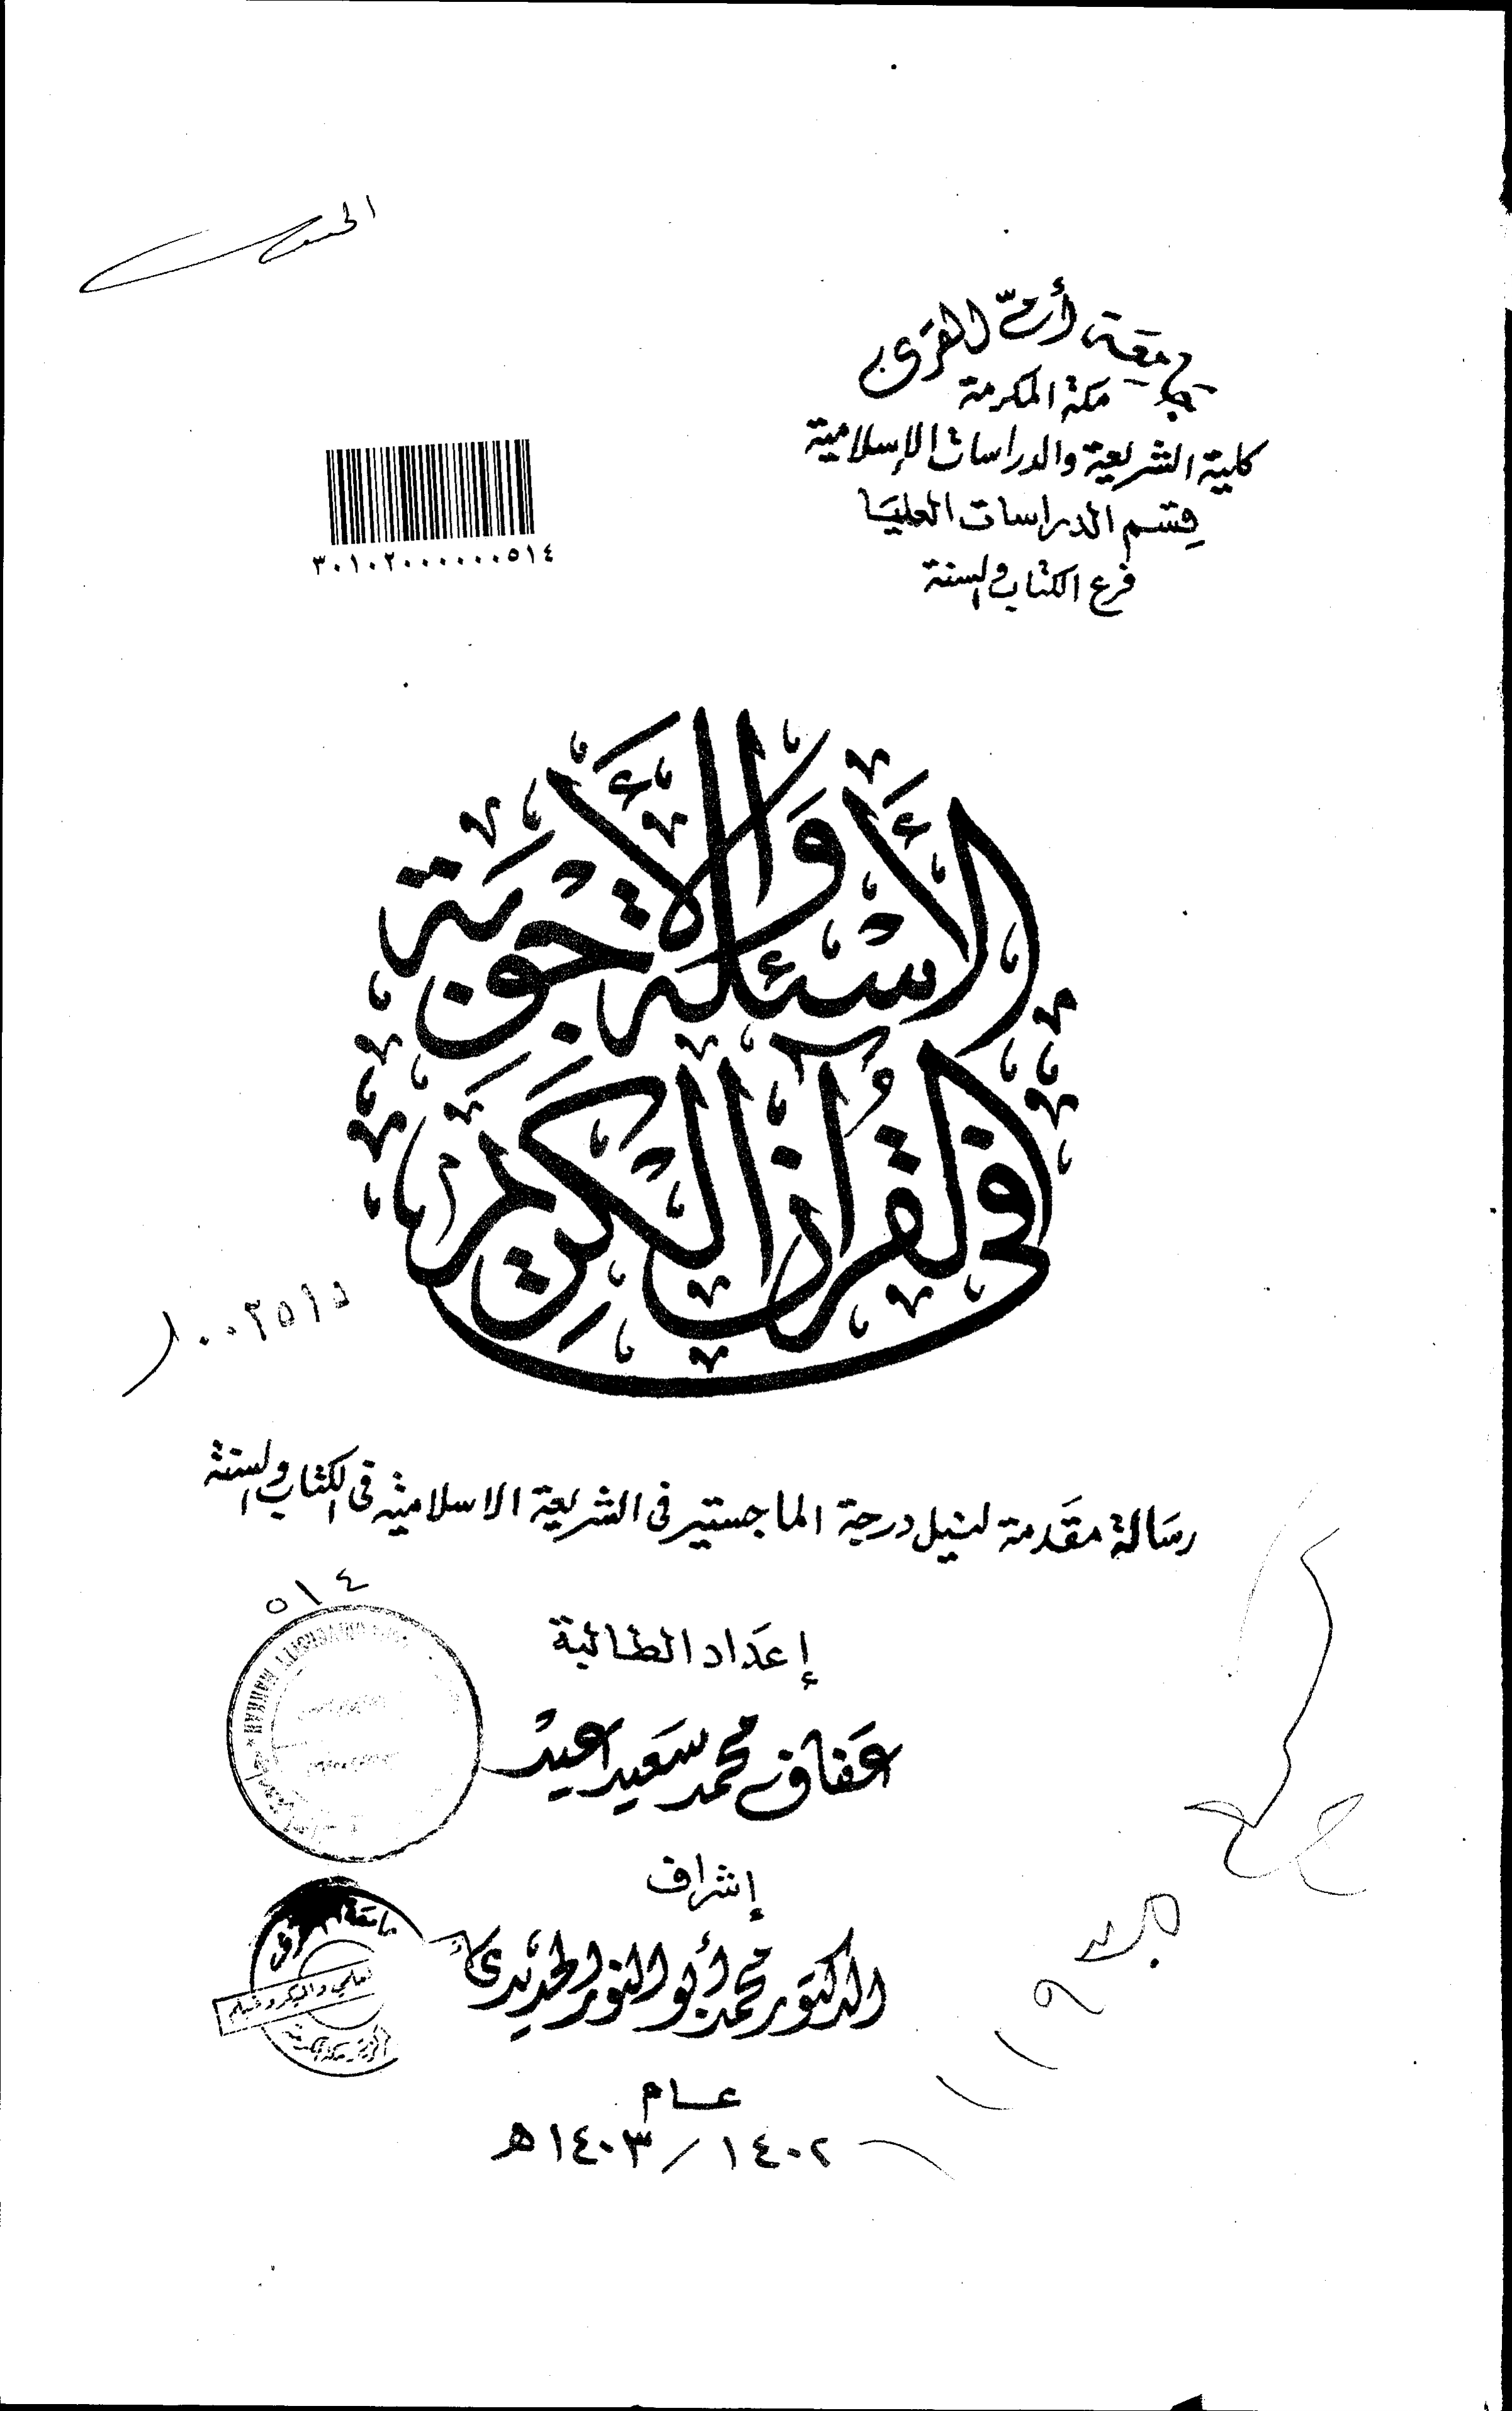 جامعة أم القرى
مكة المكرمة
كلية الشريعة والدراسات الإسلامية
قسم الدراسات العليا
فرع الكتاب والسنة
٣٠١٠٢٠٠٠٠٠٠٥١٤
الأسئلة والأجوبة
في القرآن الكريم
رسالة مقدمة لنيل درجة الماجستير فى الشريعة الاسلامية فى الكتاب والسنة
٥١٤
إعداد الطالبة
عفاف محمد سعيد اعيد
إشراف
الدكتور محمد أبو النور الحديدى
عام
١٤٠٢ / ١٤٠٣ هـ